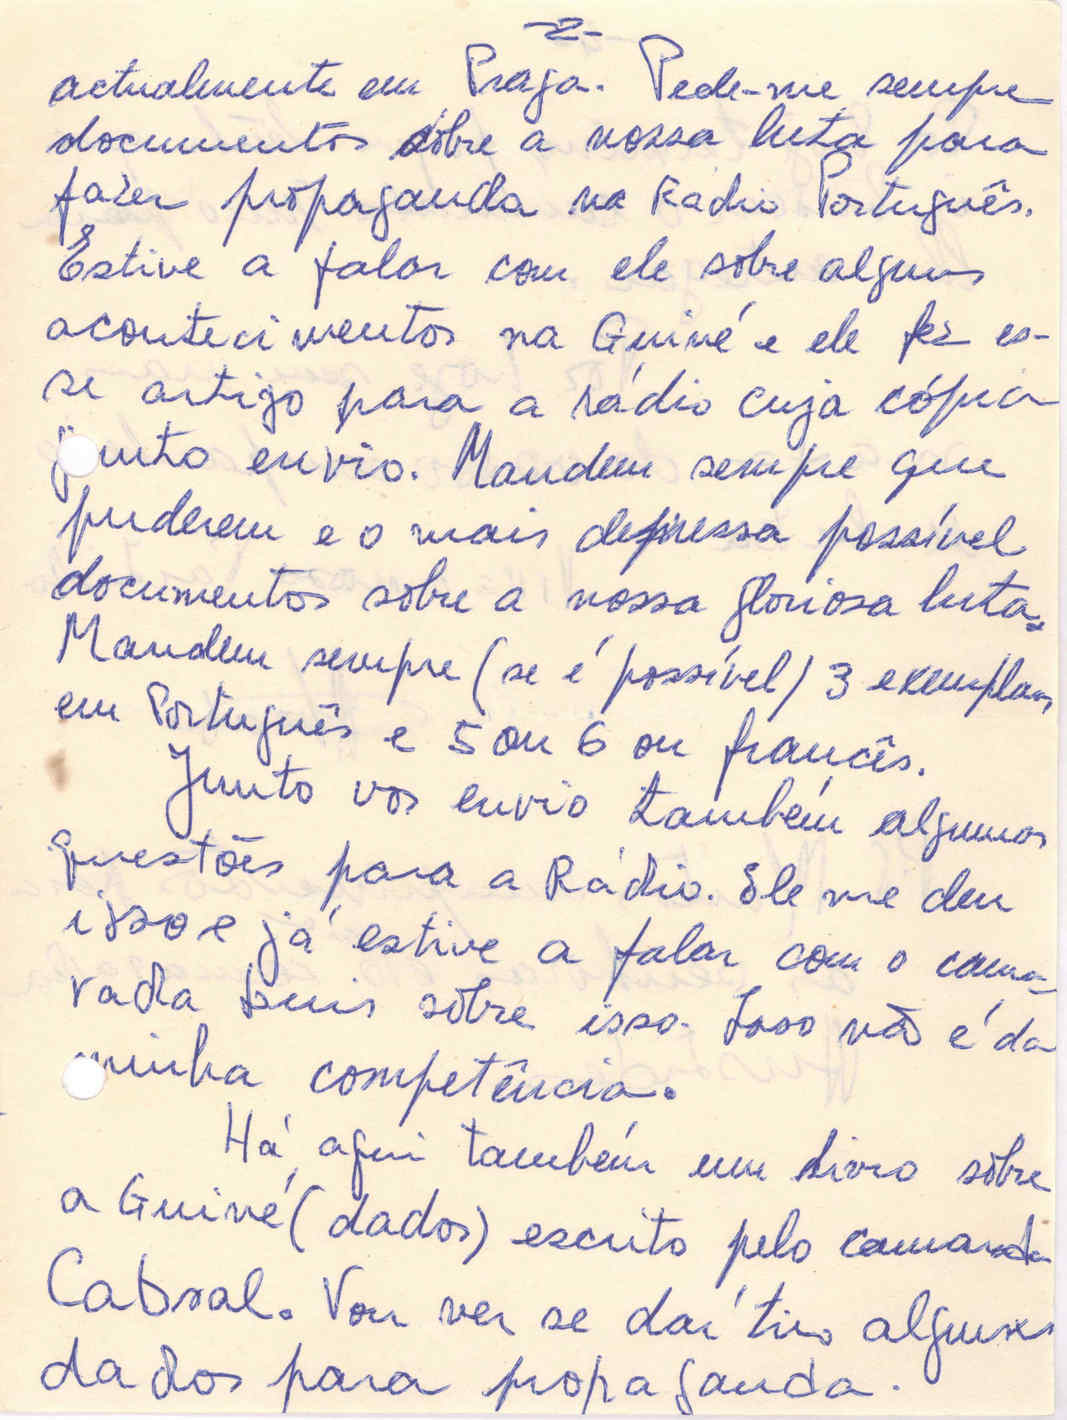 -2-
actualmente em Praga. Pede-me sempre
documentos sôbre a nossa luta para
fazer propaganda na Rádio Português.
Estive a falar com ele sôbre alguns
acontecimentos na Guiné e ele fez es-
se artigo para a rádio cuja cópia
junto envio. Mandem sempre que
puderem e o mais depressa possível
documentos sôbre a nossa gloriosa luta.
Mandem sempre (se é possível) 3 exemplares
em Português e 5 ou 6 ou francês.
Junto vos envio também algumas
questões para a Rádio. Ele me deu
isso e já estive a falar com o cama-
rada Luis sôbre isso. Isso não é da
minha competência.
Há aqui também um livro sôbre
a Guiné (dados) escrito pelo camarada
Cabral. Vou ver se daí tiro alguns
dados para propaganda.